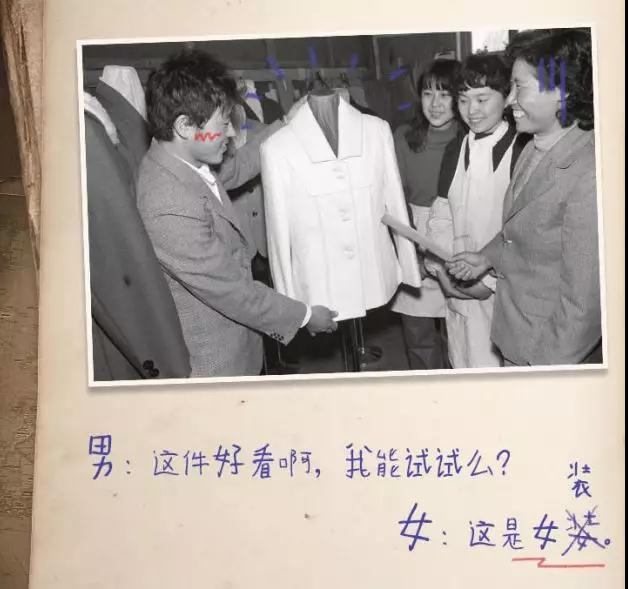 男：这件好看啊，我能试试么？
装
女：这是女装。